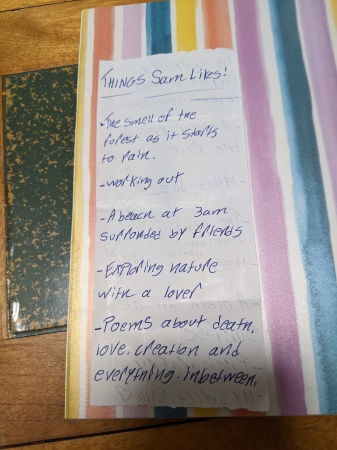 THINGS Sam Likes!
-The smell of the
forest as it starts
to rain.
-working out
-A beach at 3am
surronded by friends
-Exploring nature
with a lover
-Poems about death,
love, creation and
everything. inbetween.